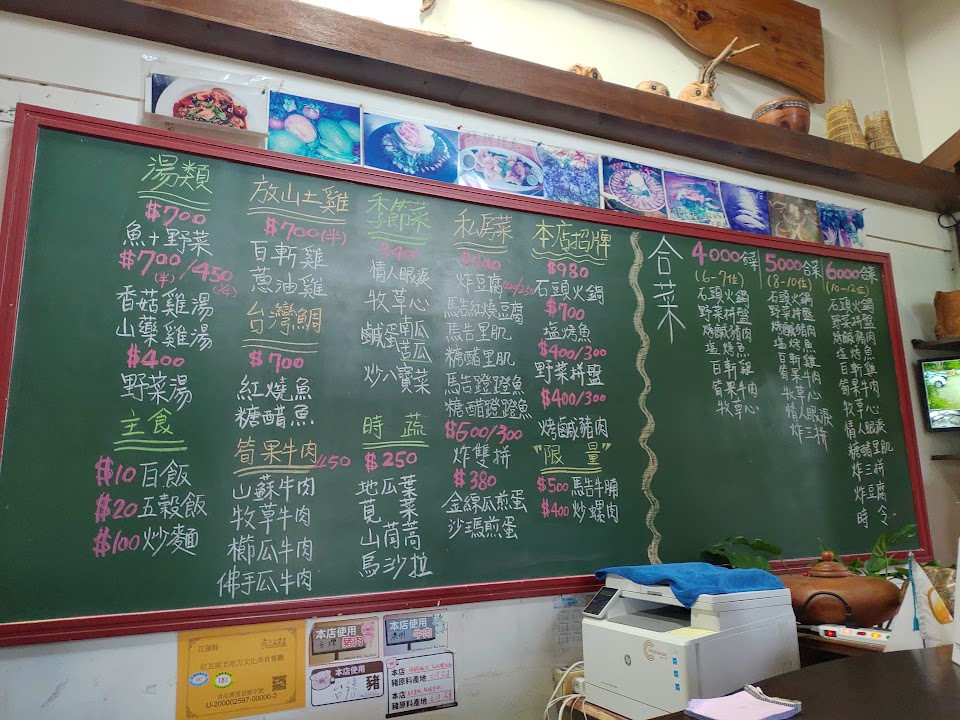 湯類
$700
魚+野菜
$700/450
(半) (¼)
香菇雞湯
山藥雞湯
$400
野菜湯
主食
$10 白飯
$20 五穀飯
$100 炒麵
放山土雞
$700(半)
百斬雞
蔥油雞
台灣鯛
$700
紅燒魚
糖醋魚
筍果牛肉 450
山蘇牛肉
牧草牛肉
櫛瓜牛肉
佛手瓜牛肉
季節菜
$400
情人眼淚
牧草心
鹹蛋南瓜
苦瓜
炒八寶菜
時蔬
$250
地瓜葉
莧菜
山茼蒿
馬沙拉
私房菜
炸豆腐
馬告紅燒豆腐
馬告里肌
糖醋里肌
馬告蹬蹬魚
糖醋蹬蹬魚
$500/300
炸雙拼
$380
金絲瓜煎蛋
沙瑪煎蛋
本店招牌
$980
石頭火鍋
$700
塩烤魚
$400/300
野菜拼盤
$400/300
烤鹹豬肉
"限量"
$500 馬告牛腩
$400 炒螺肉
合菜
4000合菜
(6-7位)
石頭火鍋
野菜拼盤
烤鹹豬肉
塩烤魚
百斬雞
筍果牛肉
牧草心
5000合菜
(8-10位)
石頭火鍋
野菜拼盤
烤鹹豬肉
塩烤魚
百斬雞
筍果牛肉
牧草心
情人眼淚
炸三拼
6000合菜
(10-12位)
石頭火鍋
野菜拼盤
烤鹹豬肉
塩烤魚
百斬雞
筍果牛肉
牧草心
情人眼淚
糖醋里肌
炸三拼
炸豆腐
時令
花蓮縣
紅瓦屋老地方文化美食餐廳
U-200002597-00000-2
本店使用
豬肉
本店使用
牛肉
本店使用
豬
本店
豬原料產地
本店
豬原料產地
hp